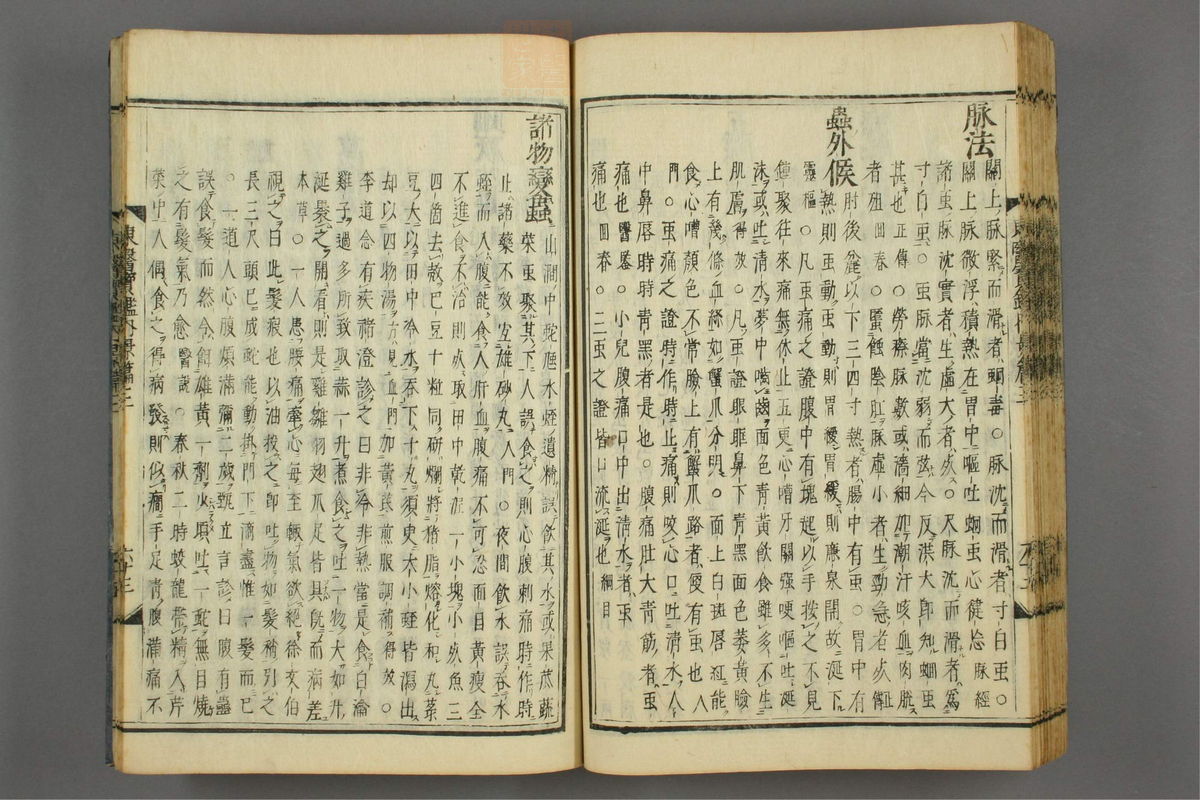 脉法
關上脉緊而滑者蛔毒○脉沈而滑者寸白䖝○
關上脉微浮積熱在胃中嘔吐蛔䖝心健忘脉經
諸䖝脉沈實者生虛大者危○尺脉沈而滑者爲
寸白䖝○䖝脉當沈弱而弦今反洪大卽知蛔䖝
甚也正傳○勞瘵脉數或濇細加潮汗咳血肉脫
者殂回春○䘌蝕陰肛脉虛小者生勁急者危
蟲外候
肘後麄以下三四寸熱者腸中有䖝○胃中有
熱則䖝動䖝動則胃緩胃緩則廉泉開故涎下
靈樞○凡䖝痛之證腹中有塊起以手按之不見
徃來痛無休止五更心嘈牙關强哽嘔吐涎
沫或吐淸水夢中嚙齒面色靑黃飮食雖多不生
肌膚得效○凡䖝證眼眶鼻下靑黑面色萎黃臉
上有幾條血絲如蟹爪分明○面上白斑唇紅能
食心嘈顔色不常臉上有蟹爪路者便有䖝也入
門○䖝痛之證時作時止痛則咬心口吐淸水人
中鼻唇時時靑黑者是也○腹痛肚大靑筋者䖝
痛也醫鑑○小兒腹痛口中出淸水者䖝
痛也回春○三䖝之證皆口流涎也綱目
諸物變蟲
山澗中蛇虺水蛭遺精誤飮其水或果蓏蔬
菜䖝聚其下人誤食之則心腹刺痛時作時
止諸藥不效宜雄砂丸入門○夜間飮水誤呑水
蛭而入腹能食人肝血腹痛不可忍面目黃瘦全
不進食不治則死取田中乾泥一小塊小死魚三
四箇去殼巴豆十粒同硏爛將猪脂熔化和丸菉
豆大以田中冷水呑下十丸須臾大小蛭皆瀉出
却以四物湯方見血門加黃芪煎服調補得效○
李道念有疾褚澄診之曰非冷非熱當是食白瀹
雞子過多所致取蒜一升煮食之吐一物大如升
涎裹之開看則是雞雛羽翅爪足皆具而病差
本草○一人患腰痛牽心每至輒氣欲絶徐文伯
視之曰此髮瘕也以油投之卽吐物如髮稍引之
長三尺頭已成蛇能動掛門下滴盡惟一髮而已
○一道人心腹煩滿彌二歲甄立言診曰腹有蠱
誤食髮而然令餌雄黃一劑少頃吐一蛇無目燒
之有髮氣乃愈醫說○春秋二時蛟龍帶精入芹
菜中人偶食之得病發則似癎手足靑腹滿痛不